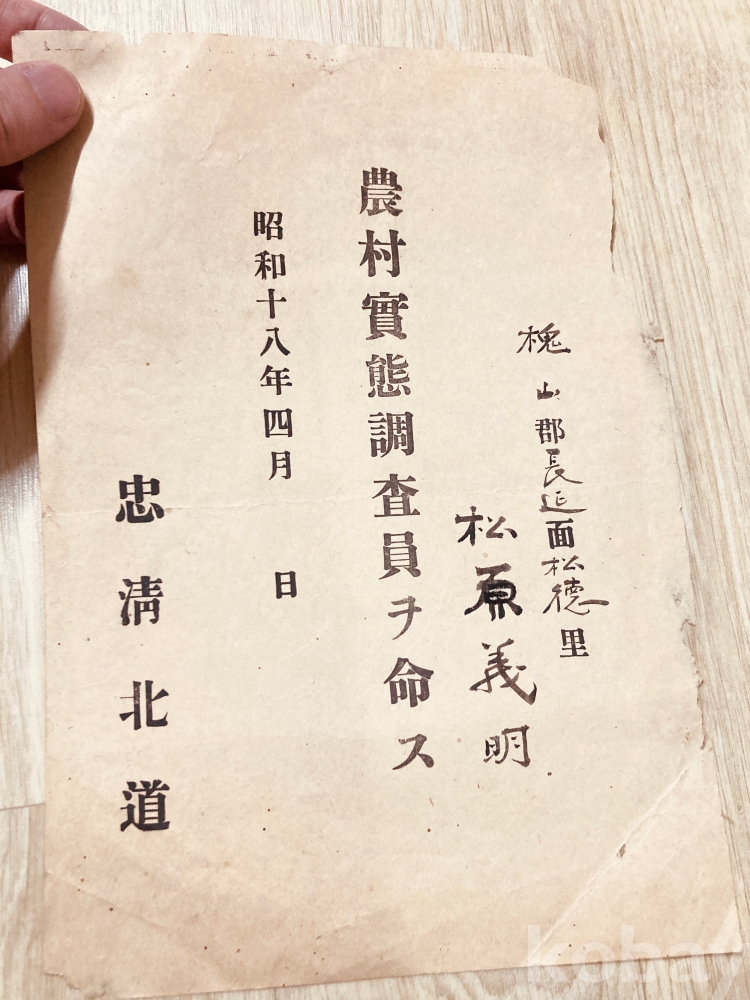 槐山郡長延面松德里
松原義明
農村實態調査員ヲ命ス
昭和十八年四月 日
忠淸北道
kobay